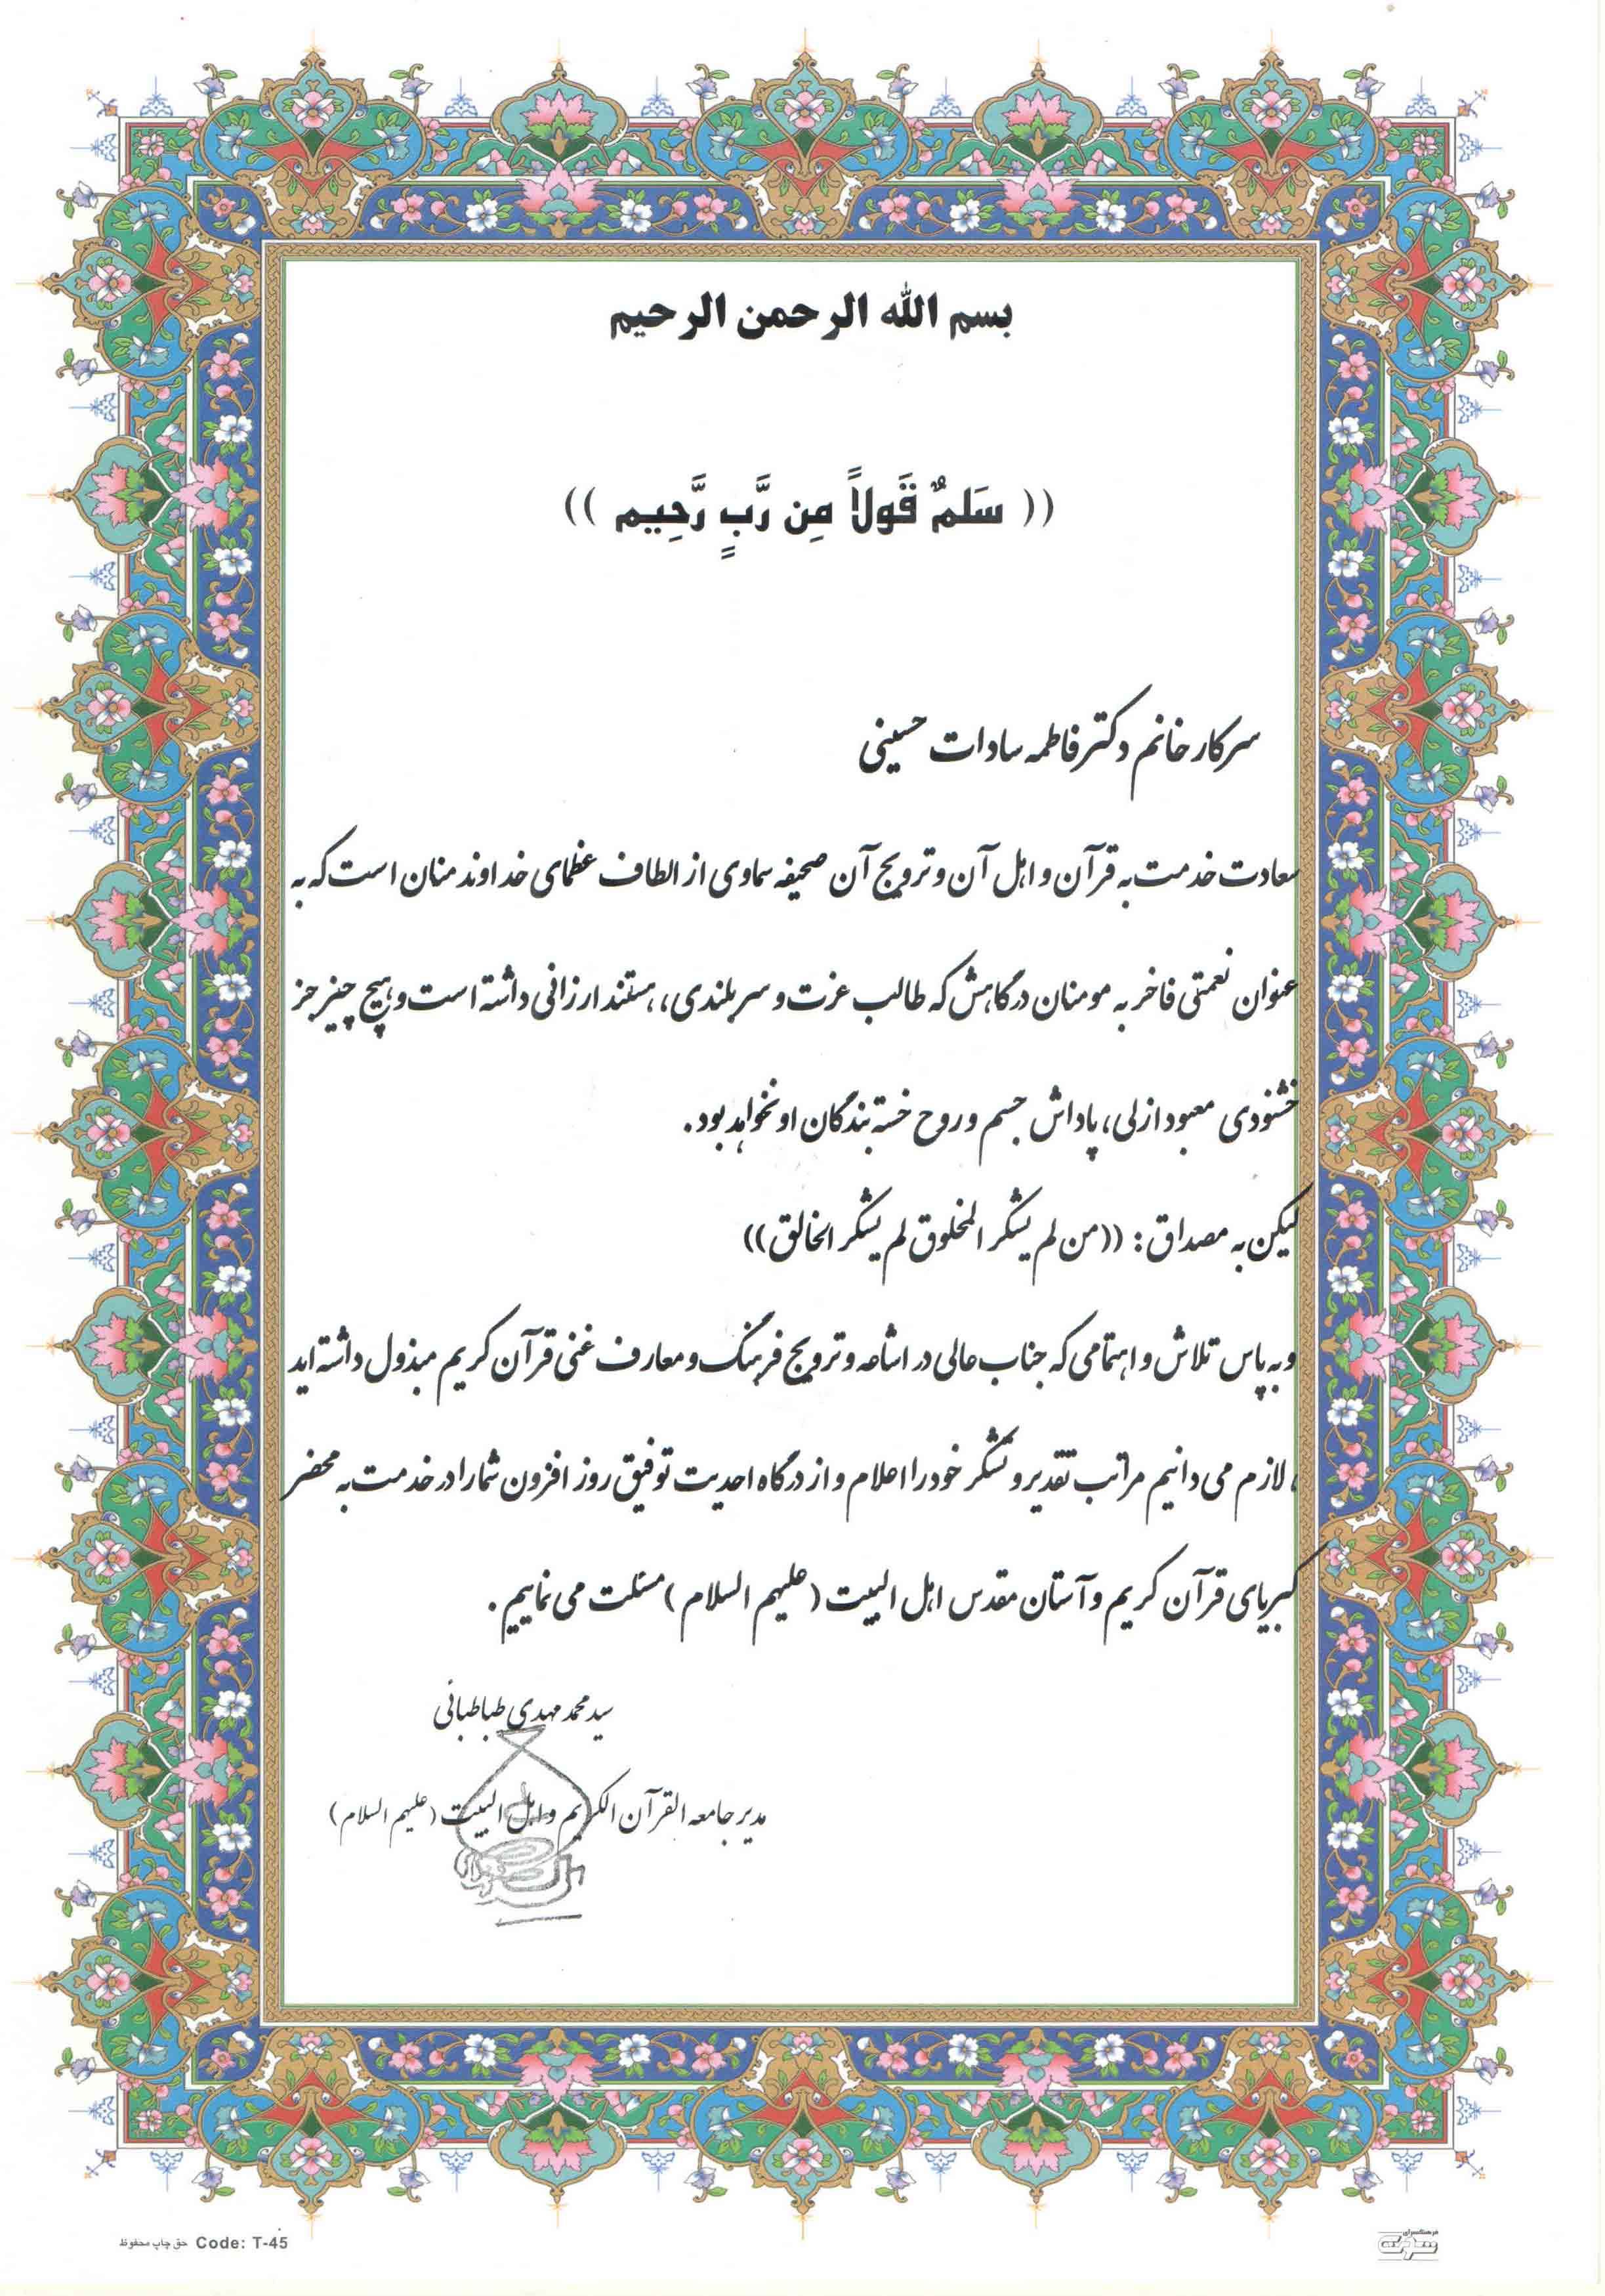 بسم الله الرحمن الرحیم
(( سَلمٌ قَولاً مِن رَّبٍ رَّحِیم ))
سرکار خانم دکتر فاطمه سادات حسینی
سعادت خدمت به قرآن و اهل آن و ترویج آن صحیفه سماوی از الطاف عظمای خداوند منان است که به
عنوان نعمتی فاخر به مومنان درگاهش که طالب عزت و سربلندی، هستند ارزانی داشته است و هیچ چیز جز
خشنودی معبود ازلی، پاداش جسم و روح خسته بندگان او نخواهد بود.
لیکن به مصداق: ((من لم یشکر المخلوق لم یشکر الخالق))
و به پاس تلاش و اهتمامی که جناب عالی در اشاعه و ترویج فرهنگ و معارف غنی قرآن کریم مبذول داشته اید
، لازم می دانیم مراتب تقدیر و تشکر خود را اعلام و از درگاه احدیت توفیق روز افزون شما را در خدمت به محضر
کبریای قرآن کریم و آستان مقدس اهل البیت (علیهم السلام) مسئلت می نماییم.
سید محمد مهدی طباطبائی
مدیر جامعه القرآن الکریم و اهل البیت (علیهم السلام)
حق چاپ محفوظ Code: T-45
فرهنگسرای